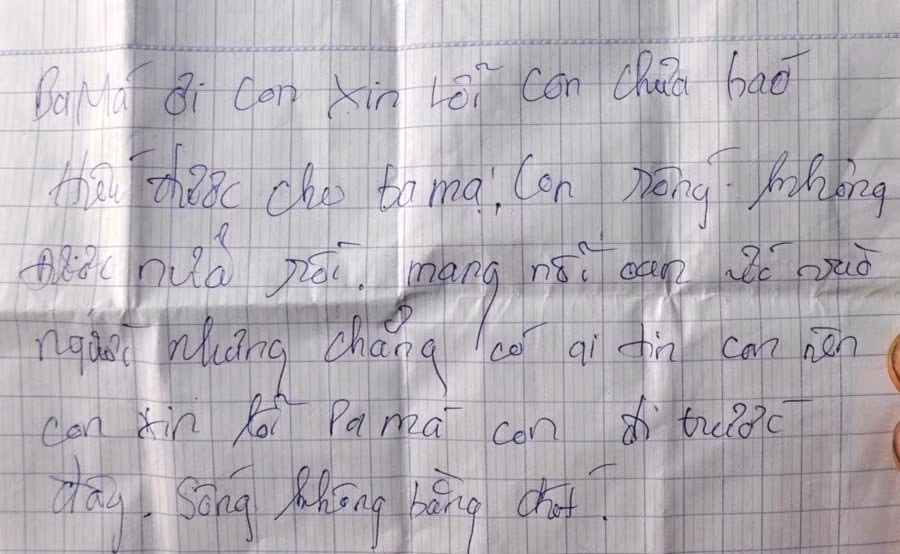 Ba Má ơi con xin lỗi con chưa báo
hiếu được cho ba má, Con sống không
được nữa rồi. mang nỗi oan ức vào
người nhưng chẳng có ai tin con nên
con xin lỗi Ba má con đi trước
đây. Sống không bằng chết.